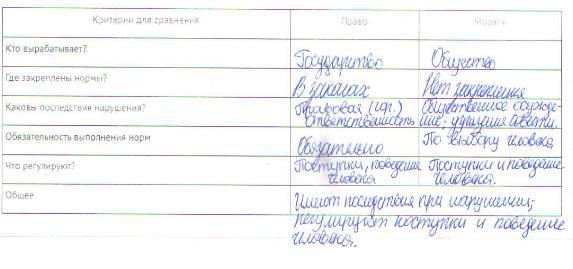 Критерии для сравнения Право Мораль
Кто вырабатывает? Государство Общество
Где закреплены нормы? В законах Нет закрепления
Каковы последствия нарушения? Правовая (юр.) Общественное осужде-
ответственность ние; угрызения совести.
Обязательность выполнения норм Обязательно По выбору человека
Что регулируют? Поступки, поведение Поступки и поведение
человека человека.
Общее Имеют последствия при нарушении;
регулируют поступки и поведение
человека.